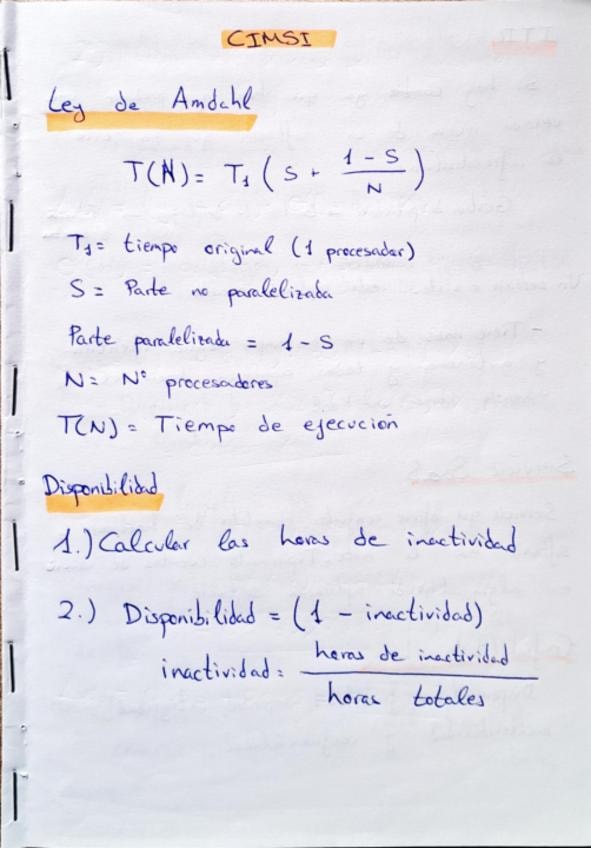 CIMSI
Ley de Amdahl
T(N) = T₁ ( S + (1 - S)/N )
T₁ = tiempo original (1 procesador)
S = Parte no paralelizada
Parte paralelizada = 1 - S
N = Nº procesadores
T(N) = Tiempo de ejecución
Disponibilidad
1.) Calcular las horas de inactividad
2.) Disponibilidad = (1 - inactividad)
inactividad = horas de inactividad / horas totales